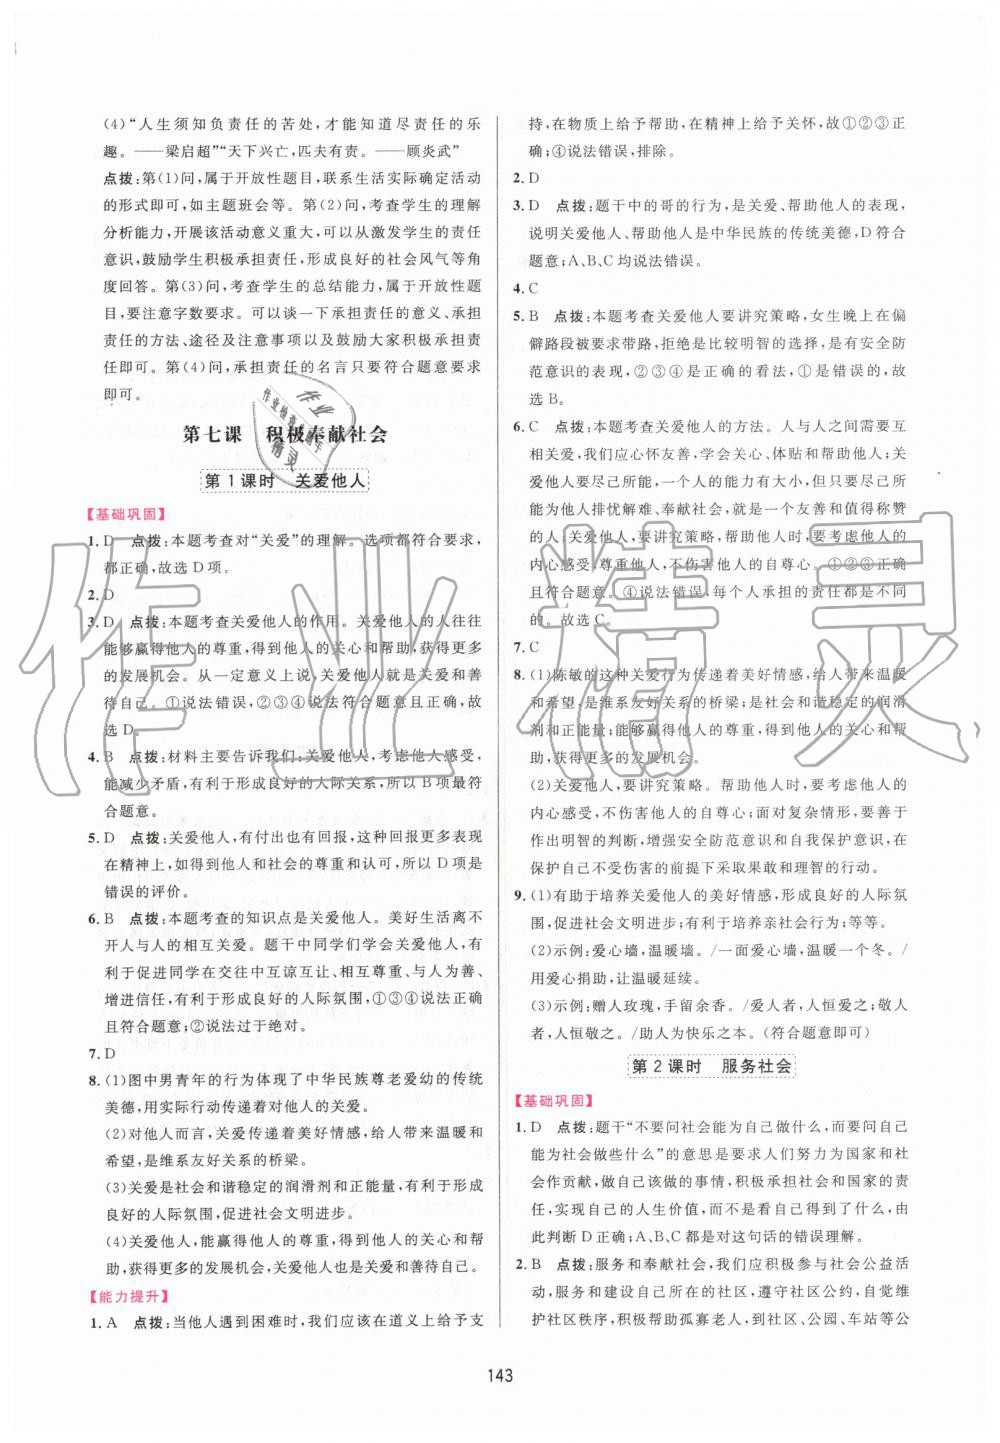 (4)“人生须知负责任的苦处,才能知道尽责任的乐
趣。——梁启超”“天下兴亡,匹夫有责。——顾炎武”
点拨:第(1)问,属于开放性题目,联系生活实际确定活动
的形式即可,如主题班会等。第(2)问,考查学生的理解
分析能力,开展该活动意义重大,可以从激发学生的责任
意识,鼓励学生积极承担责任,形成良好的社会风气等角
度回答。第(3)问,考查学生的总结能力,属于开放性题
目,要注意字数要求。可以谈一下承担责任的意义、承担
责任的方法、途径及注意事项以及鼓励大家积极承担责任
即可。第(4)问,承担责任的名言只要符合题意要求
即可。
第七课 积极奉献社会
第1课时 关爱他人
【基础巩固】
1. D 点拨:本题考查对“关爱”的理解。选项都符合要求,
都正确,故选 D项。
2. D
3. D 点拨:本题考查关爱他人的作用。关爱他人的人往往
能够赢得他人的尊重,得到他人的关心和帮助,获得更多
的发展机会。从一定意义上说,关爱他人就是关爱和善
待自己。①说法错误,排除含①的选项即可得到正确答案,故
选D。
4. B 点拨:材料主要告诉我们:关爱他人,考虑他人感受,
能减少矛盾,有利于形成良好的人际关系,所以 B项最符
合题意。
5. D 点拨:关爱他人,有付出也有回报,这种回报更多表现
在精神上,如得到他人和社会的尊重和认可,所以 D 项是
错误的评价。
6. B 点拨:本题考查的知识点是关爱他人。美好生活离不
开人与人的相互关爱。题干中同学们学会关爱他人,有
利于促进同学在交往中互谅互让、相互尊重、与人为善、
增进信任,有利于形成良好的人际氛围,①③④说法正确
且符合题意;②说法过于绝对。
7. D
8. (1)图中男青年的行为体现了中华民族尊老爱幼的传统
美德,用实际行动传递着对他人的关爱。
(2)对他人而言,关爱传递着美好情感,给人带来温暖和
希望,是维系友好关系的桥梁。
(3)关爱是社会和谐稳定的润滑剂和正能量,有利于形成
良好的人际氛围,促进社会文明进步。
(4)关爱他人,能赢得他人的尊重,得到他人的关心和帮
助,获得更多的发展机会,关爱他人也是关爱和善待自己。
【能力提升】
1. A 点拨:当他人遇到困难时,我们应该在道义上给予支
持,在物质上给予帮助,在精神上给予关怀,故①②③正
确;④说法错误,排除。
2. D
3. D 点拨:题干中的哥的行为,是关爱、帮助他人的表现,
说明关爱他人、帮助他人是中华民族的传统美德,D符合
题意;A、B、C均说法错误。
4. C
5. B 点拨:本题考查关爱他人要讲究策略,女生晚上在偏
僻路段被要求带路,拒绝是比较明智的知识,是有安全防
范意识的表现,②③④是正确的看法,①是错误的,故
选 B。
6. C 点拨:本题考查关爱他人的方法。人与人之间需要
关爱,我们应心怀友善,学会关心、体贴和帮助他人;关
爱他人要尽己所能,一个人的能力有大小,但只要尽己所能
为他人排忧解难、奉献社会,就是一个友善和值得称赞
的人;关爱他人,要讲究策略,帮助他人时,要考虑他人的
内心感受,尊重他人,不伤害他人的自尊心。①②③正确
且符合题意。④说法错误,每个人承担的责任都是不同
的。故选C。
7. C
8. (1)陈敏的这种关爱行为传递着美好情感,给人带来温暖
和希望,是维系友好关系的桥梁;是社会和谐稳定的润滑
剂和正能量;能够赢得他人的尊重,得到他人的关心和帮
助,获得更多的发展机会。
(2)关爱他人,要讲究策略。帮助他人时,要考虑他人的
内心感受,不伤害他人的自尊心;面对复杂情形,要善于
作出明智的判断,增强安全防范意识和自我保护意识,在
保护自己不受伤害的前提下采取果敢和理智的行动。
9. (1)有助于培养关爱他人的美好情感,形成良好的人际氛
围,促进社会文明进步;有利于培养亲社会行为;等等。
(2)示例:爱心墙,温暖墙。/一面爱心墙,温暖一个冬。/
用爱心捐助,让温暖延续。
(3)示例:赠人玫瑰,手留余香。/爱人者,人恒爱之;敬人
者,人恒敬之。/助人为快乐之本。(符合题意即可)
第2课时 服务社会
【基础巩固】
1. D 点拨:题干“不要问社会能为自己做什么,而要问自己
能为社会做些什么”的意思是要求人们努力为国家和社
会作贡献,做自己该做的事情,积极承担社会和国家的责
任,实现自己的人生价值,而不是看自己得到了什么,由
此判断D正确;A、B、C都是对这句话的错误理解。
2. B 点拨:服务和奉献社会,我们应积极参与社会公益活
动,还应服务自己所在的社区,遵守社区公约,自觉维
护社区秩序,积极帮助孤寡老人,到社区、公园、车站等公
143
作业
作业检查小助手
精灵
作业精灵